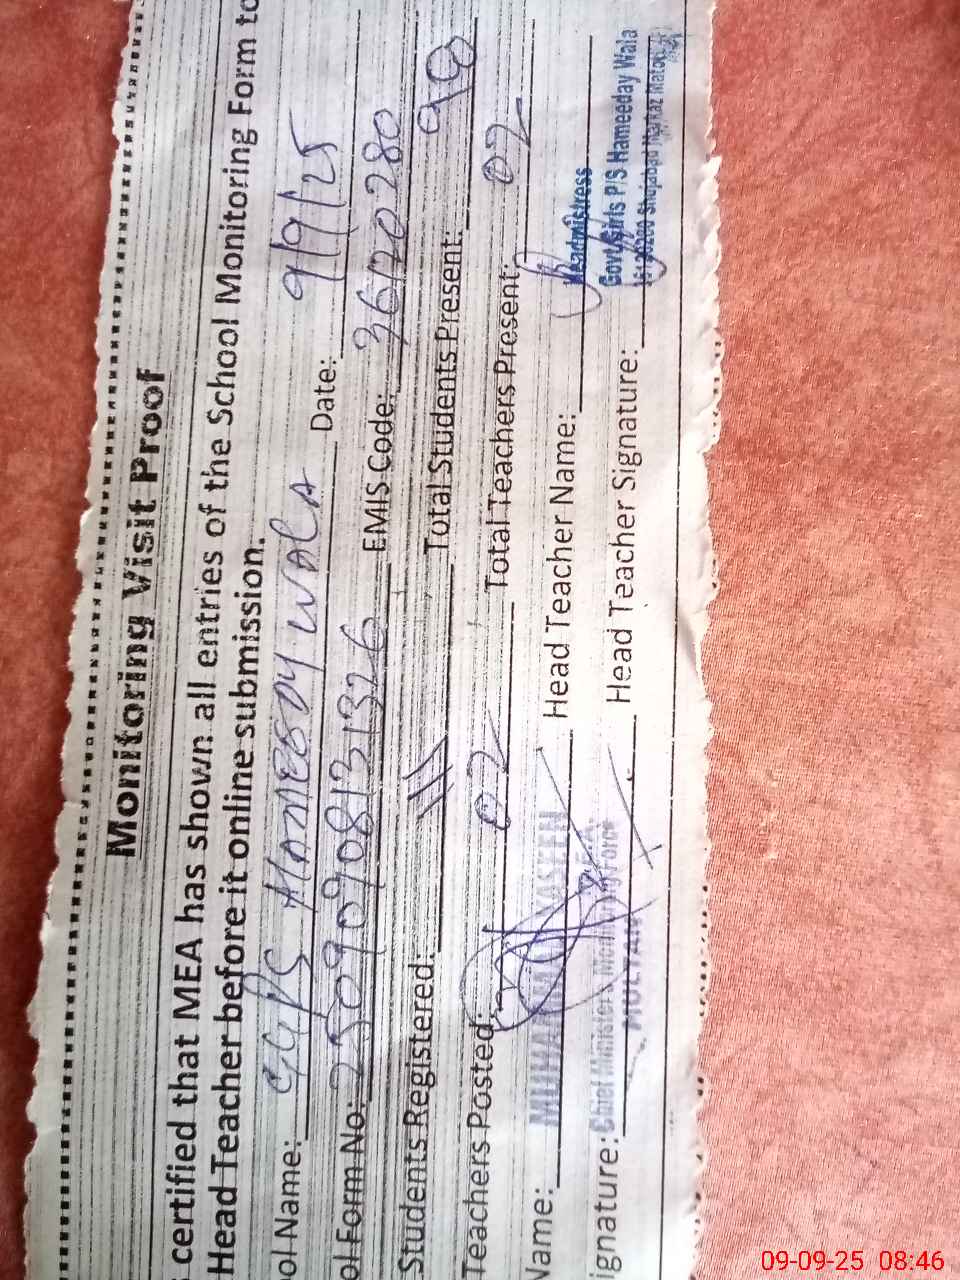 Monitoring Visit Proof
certified that MEA has shown all entries of the School Monitoring Form to
Head Teacher before it online submission.
ol Name: GGPS HAMEEDY WALA Date: 9/9/25
ol Form No: 25090908131326 EMIS Code: 36120280
Students Registered: 111 Total Students Present: 98
Teachers Posted: 02 Total Teachers Present: 02
Name: MUHAMMAD YASEEN Head Teacher Name: Headmistress
Govt Girls P/S Hameeday Wala
ignature: Chief Minister Monitoring Force Head Teacher Signature: Shujabad Markaz
MULTAN
09-09-25 08:46